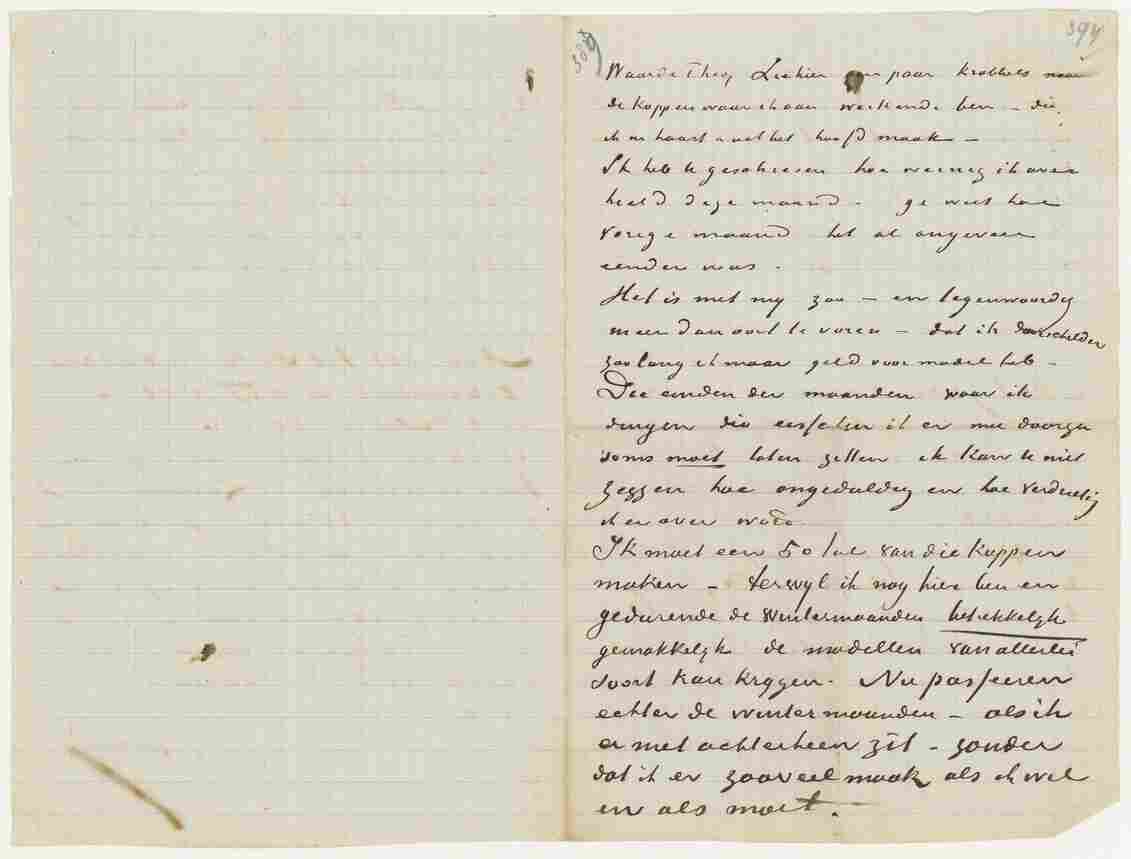 389
394
Waarde Theo, Ziehier een paar krabbels naar
de koppen waar ik aan werkende ben – die
ik in haast & uit het hoofd maak –
Ik heb U geschreven hoe weinig ik over
hield deze maand – ge weet hoe
vorige maand het al ongeveer
eender was.
Het is met mij zoo – en tegenwoordig
meer dan ooit te voren – dat ik doorschilder
zoo lang ik maar geld voor model heb –
Die einden der maanden waar ik
dingen die eischen ik er mee doorga
soms moet laten zitten ik kan U niet
zeggen hoe ongeduldig en hoe verdrietig
ik er over word
Ik moet een 50 tal van die koppen
maken – terwijl ik nog hier ben en
gedurende de wintermaanden betrekkelijk
gemakkelijk de modellen van allerlei
soort kan krijgen. Nu passeeren
echter de wintermaanden – als ik
er niet achterheen zit – zonder
dat ik er zooveel maak als ik wil
en als moet.